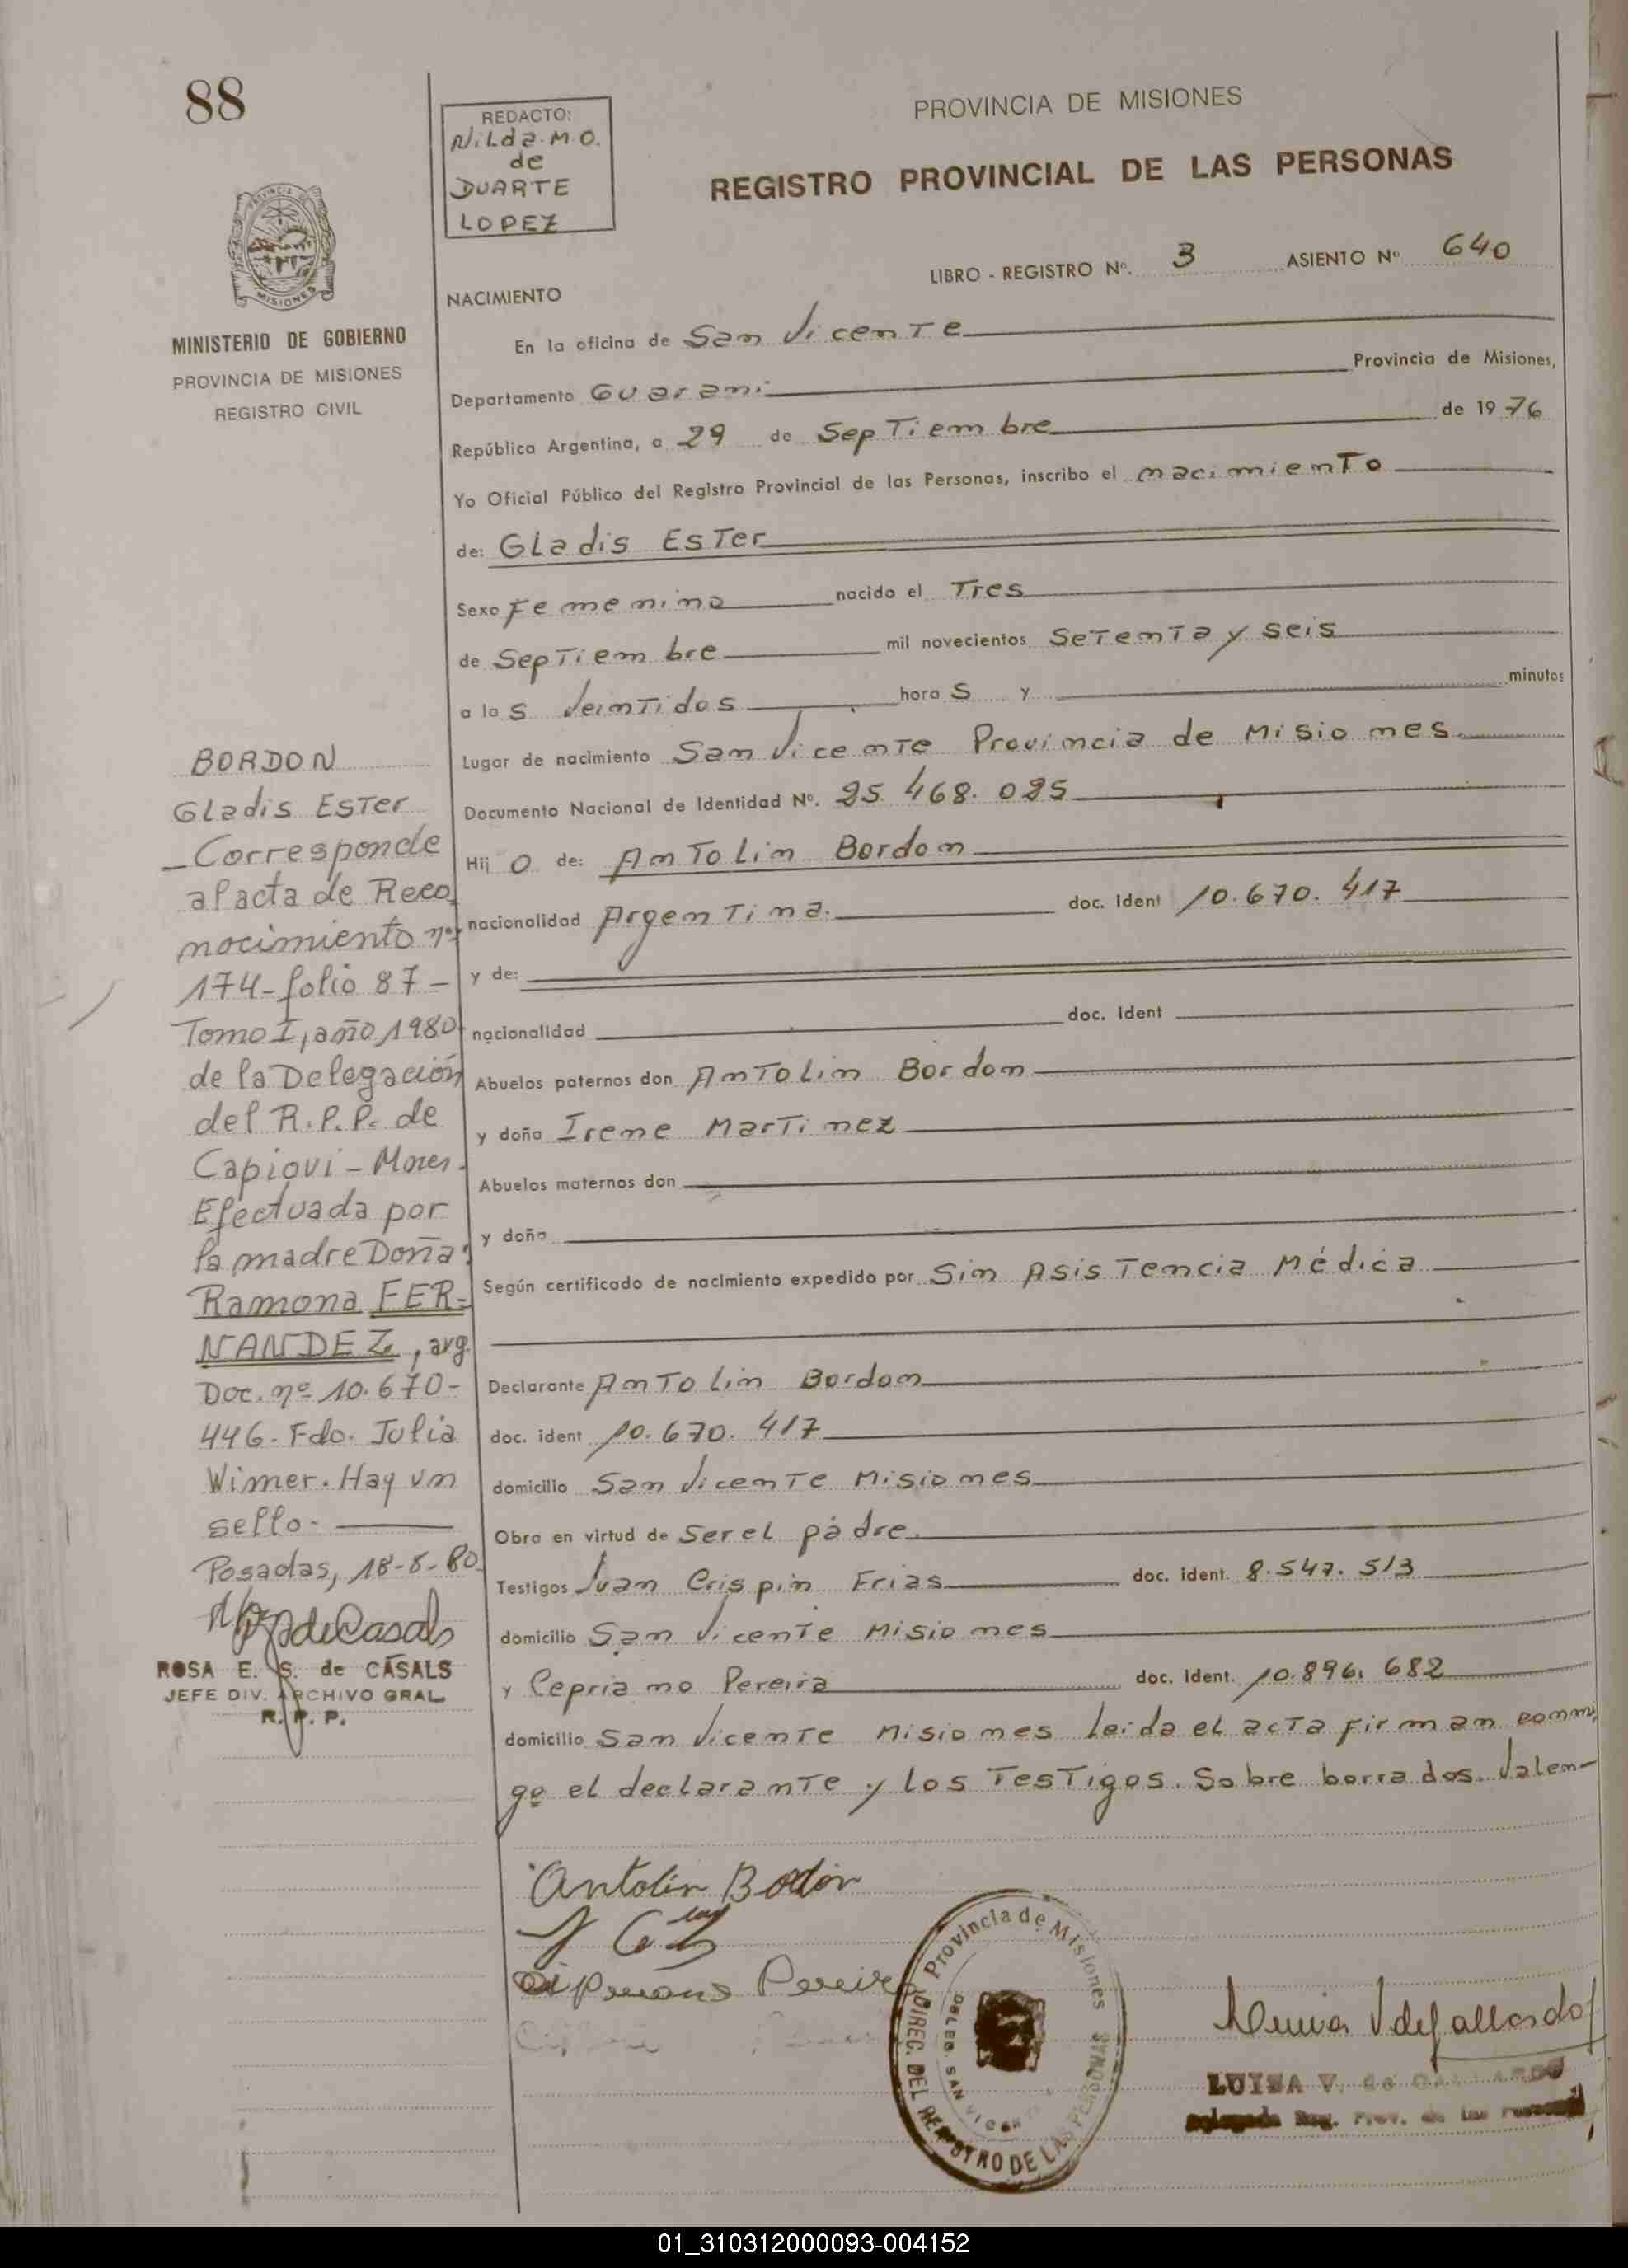 88
REDACTO:
Nilda M.O.
de
DUARTE
LOPEZ
PROVINCIA DE MISIONES
REGISTRO PROVINCIAL DE LAS PERSONAS
LIBRO - REGISTRO Nº. 3 ASIENTO Nº 640
MISIONES
MINISTERIO DE GOBIERNO
PROVINCIA DE MISIONES
REGISTRO CIVIL
NACIMIENTO
En la oficina de San Vicente
Departamento Guarani Provincia de Misiones,
República Argentina, a 29 de Septiembre de 1976
Yo Oficial Público del Registro Provincial de las Personas, inscribo el nacimiento
de: Gladis Ester
Sexo Femenino nacido el Tres
de Septiembre mil novecientos Setenta y seis
a las Veintidos horas y minutos
Lugar de nacimiento San Vicente Provincia de Misiones
Documento Nacional de Identidad Nº. 25.468.025
Hijo de: Antolin Bordon
nacionalidad Argentina. doc. Ident 10.670.417
y de:
nacionalidad doc. Ident
Abuelos paternos don Antolin Bordon
y doña Irene Martinez
Abuelos maternos don
y doña
Según certificado de nacimiento expedido por Sin Asistencia Médica
Declarante Antolin Bordon
doc. ident 10.670.417
domicilio San Vicente Misiones
Obra en virtud de Ser el padre.
Testigos Juan Crispin Frias doc. ident. 8.547.513
domicilio San Vicente Misiones
y Cepriano Pereira doc. Ident. 10.896.682
domicilio San Vicente Misiones leida el acta firman conmi
go el declarante y los Testigos. Sobre borrados. Valen-
BORDON
Gladis Ester
_Corresponde
al acta de Reco
nocimiento nº
174-folio 87-
Tomo I, año 1980
de la Delegación
del R.P.P. de
Capiovi-Mnes.
Efectuada por
la madre Doña:
Ramona FER-
NANDEZ, arg.
Doc. nº 10.670-
446. Fdo. Julia
Wimer. Hay un
sello.-
Posadas, 18-8-80
ROSA E. S. de CASALS
JEFE DIV. ARCHIVO GRAL
R. P. P.
Antolin Bordón
Pereira
Provincia de Misiones
DIREC. DEL REGISTRO DE LAS PERSONAS
DELEG. SAN VICENTE
LUISA V. de GALLARDO
Delegada Reg. Prov. de las Personas
01_310312000093-004152